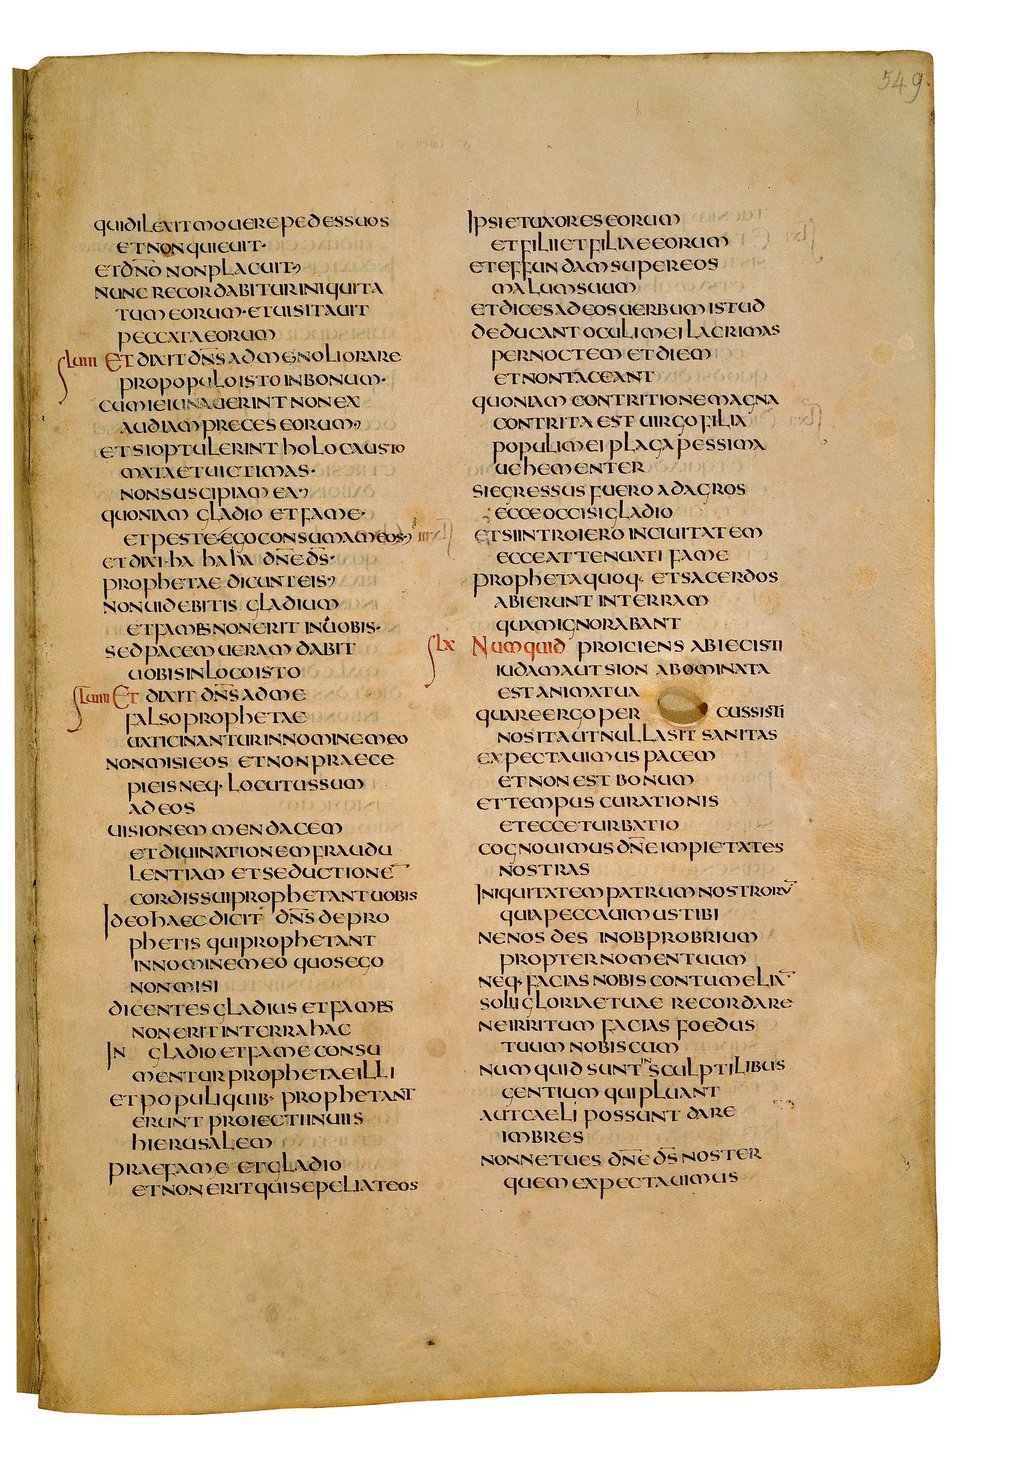 549.
QUI DILEXIT MOUERE PEDES SUOS
ET NON QUIEUIT·
ET DN̅O NON PLACUIT
NUNC RECORDABITUR INIQUITA
TUM EORUM· ET UISITAUIT
PECCATA EORUM
LUIII ET DIXIT DN̅S AD ME NOLI ORARE
PRO POPULO ISTO IN BONUM·
CUM IEIUNAUERINT NON EX
AUDIAM PRECES EORUM
ET SI OPTULERINT HOLOCAUSTO
MATA ET UICTIMAS·
NON SUSCIPIAM EA
QUONIAM GLADIO ET FAME·
ET PESTE· EGO CONSUMAM EOS
ET DIXI· HA HA HA DN̅E DS̅·
PROPHETAE DICUNT EIS
NON UIDEBITIS GLADIUM
ET FAMES NON ERIT IN UOBIS·
SED PACEM UERAM DABIT
UOBIS IN LOCO ISTO
LUIIII ET DIXIT DN̅S AD ME
FALSO PROPHETAE
UATICINANTUR IN NOMINE MEO
NON MISI EOS ET NON PRAECE
PI EIS NEQ· LOCUTUS SUM
AD EOS
UISIONEM MENDACEM
ET DIUINATIONEM FRAUDU
LENTIAM ET SEDUCTIONE̅
CORDIS SUI PROPHETANT UOBIS
IDEO HAEC DICIT DN̅S DE PRO
PHETIS QUI PROPHETANT
IN NOMINE MEO QUOS EGO
NON MISI
DICENTES GLADIUS ET FAMES
NON ERIT IN TERRA HAC
IN GLADIO ET FAME CONSU
MENTUR PROPHETAE ILLI
ET POPULI QUIB· PROPHETANT
ERUNT PROIECTI IN UIIS
HIERUSALEM
PRAE FAME ET GLADIO
ET NON ERIT QUI SEPELIAT EOS
IPSI ET UXORES EORUM
ET FILII ET FILIAE EORUM
ET EFFUNDAM SUPER EOS
MALUM SUUM
ET DICES AD EOS UERBUM ISTUD
DEDUCANT OCULI MEI LACRIMAS
PER NOCTEM ET DIEM
ET NON TACEANT
QUONIAM CONTRITIONE MAGNA
CONTRITA EST UIRGO FILIA
POPULI MEI PLAGA PESSIMA
UEHEMENTER
SI EGRESSUS FUERO AD AGROS
ECCE OCCISI GLADIO
ET SI INTROIERO IN CIUITATEM
ECCE ATTENUATI FAME
PROPHETA QUOQ· ET SACERDOS
ABIERUNT IN TERRAM
QUAM IGNORABANT
LX NUMQUID PROICIENS ABIECISTI
IUDAM AUT SION ABOMINATA
EST ANIMA TUA
QUARE ERGO PER CUSSISTI
NOS ITA UT NULLA SIT SANITAS
EXPECTAUIMUS PACEM
ET NON EST BONUM
ET TEMPUS CURATIONIS
ET ECCE TURBATIO
COGNOUIMUS DN̅E IMPIETATES
NOSTRAS
INIQUITATEM PATRUM NOSTRORU̅
QUIA PECCAUIMUS TIBI
NE NOS DES IN OBPROBRIUM
PROPTER NOMEN TUUM
NEQ· FACIAS NOBIS CONTUMELIA̅
SOLII GLORIAE TUAE RECORDARE
NE IRRITUM FACIAS FOEDUS
TUUM NOBISCUM
NUMQUID SUNT IN SCULPTILIBUS
GENTIUM QUI PLUANT
AUT CAELI POSSUNT DARE
IMBRES
NONNE TU ES DN̅E DS̅ NOSTER
QUEM EXPECTAUIMUS